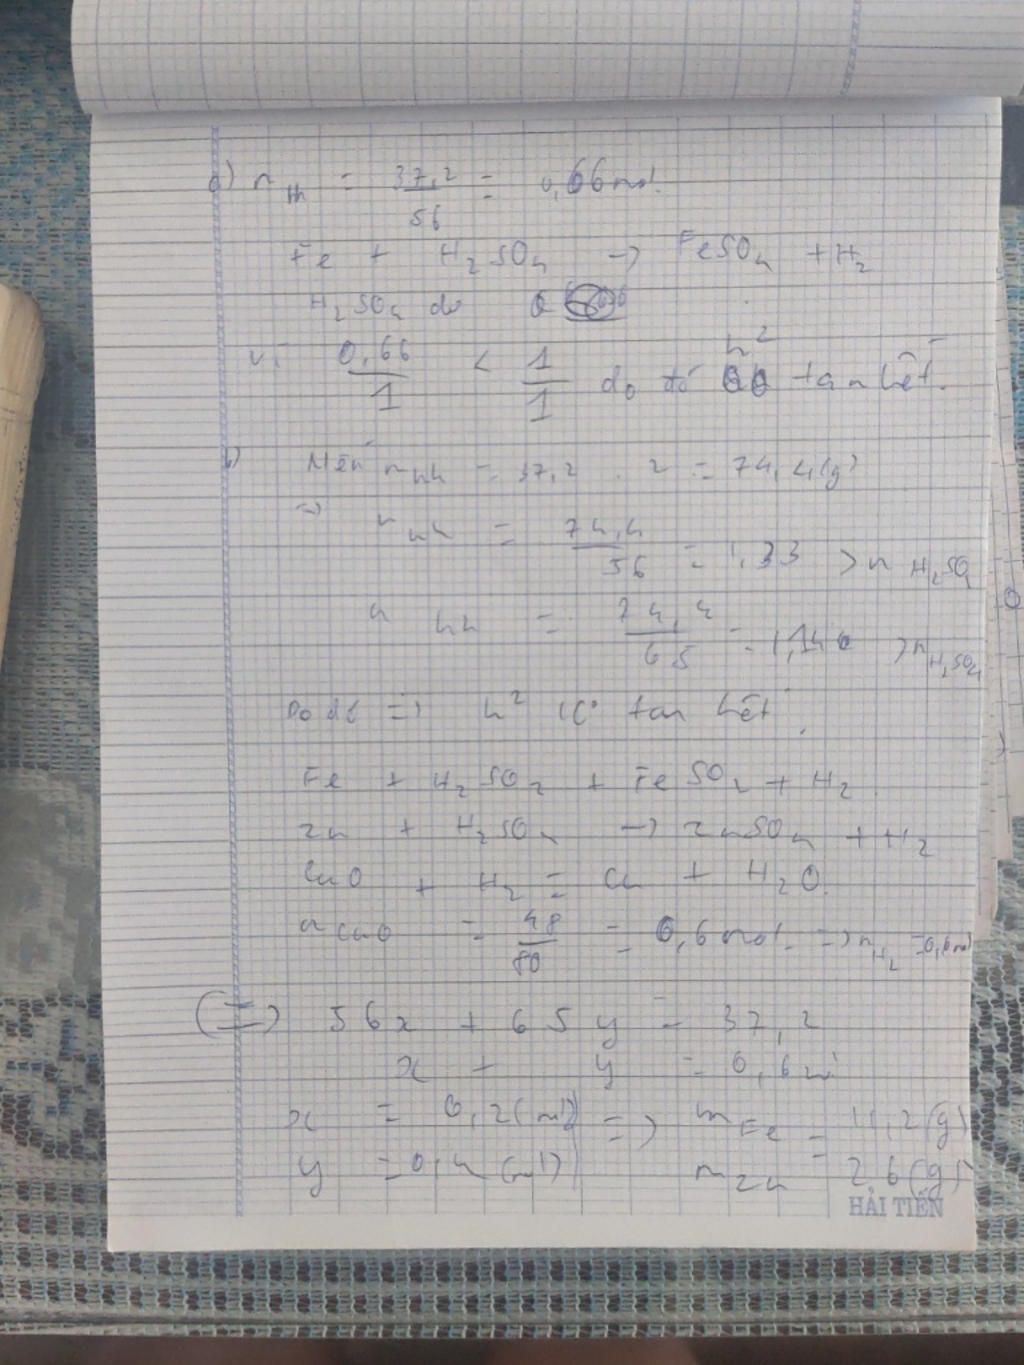 a) n hh = 37,2 / 56 = 0,66 mol.
Fe + H2SO4 -> FeSO4 + H2
H2SO4 dư 0
Vì 0,66 / 1 < 1 / 1 do đó h² tan hết.
b) Nếu m hh = 37,2 . 2 = 74,4 (g)
=> n hh = 74,4 / 56 = 1,33 > n H2SO4
n hh = 74,4 / 65 = 1,14 > n H2SO4
Do đó => h² ko tan hết.
Fe + H2SO4 + FeSO4 + H2
Zn + H2SO4 -> ZnSO4 + H2
CuO + H2 = Cu + H2O
n CuO = 48 / 80 = 0,6 mol. => n H2 = 0,6 mol
(=) 56x + 65y = 37,2
x + y = 0,6
x = 0,2 (mol) => m Fe = 11,2 (g)
y = 0,4 (mol) m Zn = 26 (g)
HẢI TIẾN